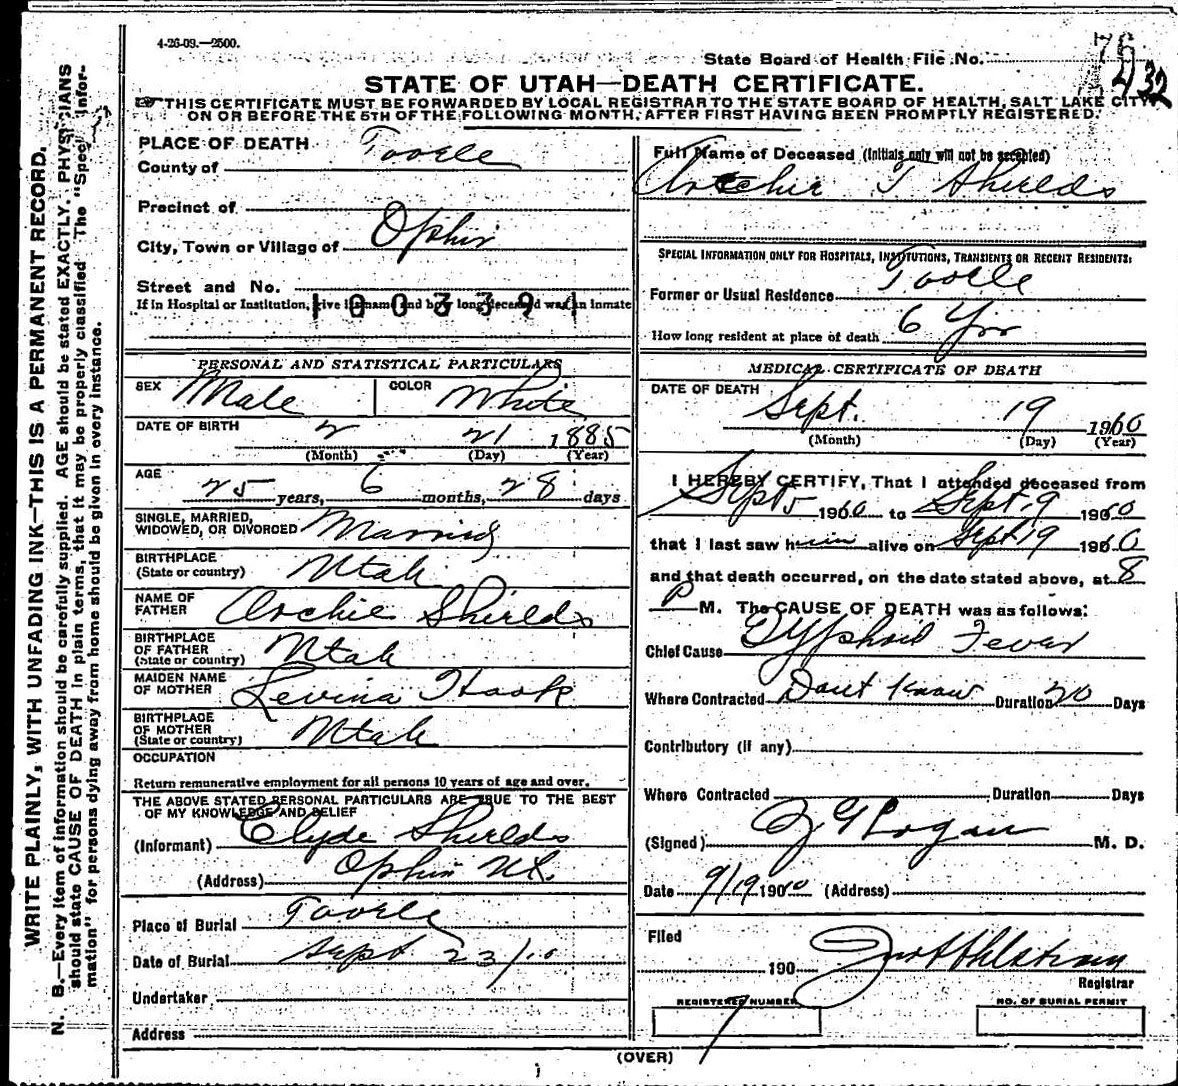 4-26-09.—2500.
State Board of Health File No.
75
432
STATE OF UTAH—DEATH CERTIFICATE.
THIS CERTIFICATE MUST BE FORWARDED BY LOCAL REGISTRAR TO THE STATE BOARD OF HEALTH, SALT LAKE CITY,
ON OR BEFORE THE 5TH OF THE FOLLOWING MONTH, AFTER FIRST HAVING BEEN PROMPTLY REGISTERED.
WRITE PLAINLY, WITH UNFADING INK—THIS IS A PERMANENT RECORD.
N. B.—Every item of information should be carefully supplied. AGE should be stated EXACTLY. PHYSICIANS
should state CAUSE OF DEATH in plain terms, that it may be properly classified The "Special Infor-
mation" for persons dying away from home should be given in every instance.
PLACE OF DEATH
County of Tooele
Precinct of
City, Town or Village of Ophir
Street and No.
If in Hospital or Institution, give its name and how long deceased was an inmate
1003391
PERSONAL AND STATISTICAL PARTICULARS
SEX Male COLOR White
DATE OF BIRTH 2 21 1885
(Month) (Day) (Year)
AGE 25 years, 6 months, 28 days
SINGLE, MARRIED,
WIDOWED, OR DIVORCED Married
BIRTHPLACE
(State or country) Utah
NAME OF
FATHER Archie Shields
BIRTHPLACE
OF FATHER
(State or country) Utah
MAIDEN NAME
OF MOTHER Levina Hook
BIRTHPLACE
OF MOTHER
(State or country) Utah
OCCUPATION
Return remunerative employment for all persons 10 years of age and over.
THE ABOVE STATED PERSONAL PARTICULARS ARE TRUE TO THE BEST
OF MY KNOWLEDGE AND BELIEF
(Informant) Clyde Shields
(Address) Ophir Ut.
Place of Burial Tooele
Date of Burial Sept 23/10
Undertaker
Address
Full Name of Deceased (Initials only will not be accepted)
Archie T Shields
SPECIAL INFORMATION ONLY FOR HOSPITALS, INSTITUTIONS, TRANSIENTS OR RECENT RESIDENTS:
Former or Usual Residence Tooele
How long resident at place of death 6 Yrs
MEDICAL CERTIFICATE OF DEATH
DATE OF DEATH Sept. 19 1910
(Month) (Day) (Year)
I HEREBY CERTIFY, That I attended deceased from
Sept 5 1910 to Sept 19 1910
that I last saw him alive on Sept 19 1910
and that death occurred, on the date stated above, at 8
P M. The CAUSE OF DEATH was as follows:
Chief Cause Typhoid Fever
Where Contracted Dont Know Duration 20 Days
Contributory (if any)
Where Contracted Duration Days
(Signed) Logan M. D.
Date 9/19 1910 (Address)
Filed
190
Registrar
REGISTERED NUMBER
1
NO. OF BURIAL PERMIT
(OVER)